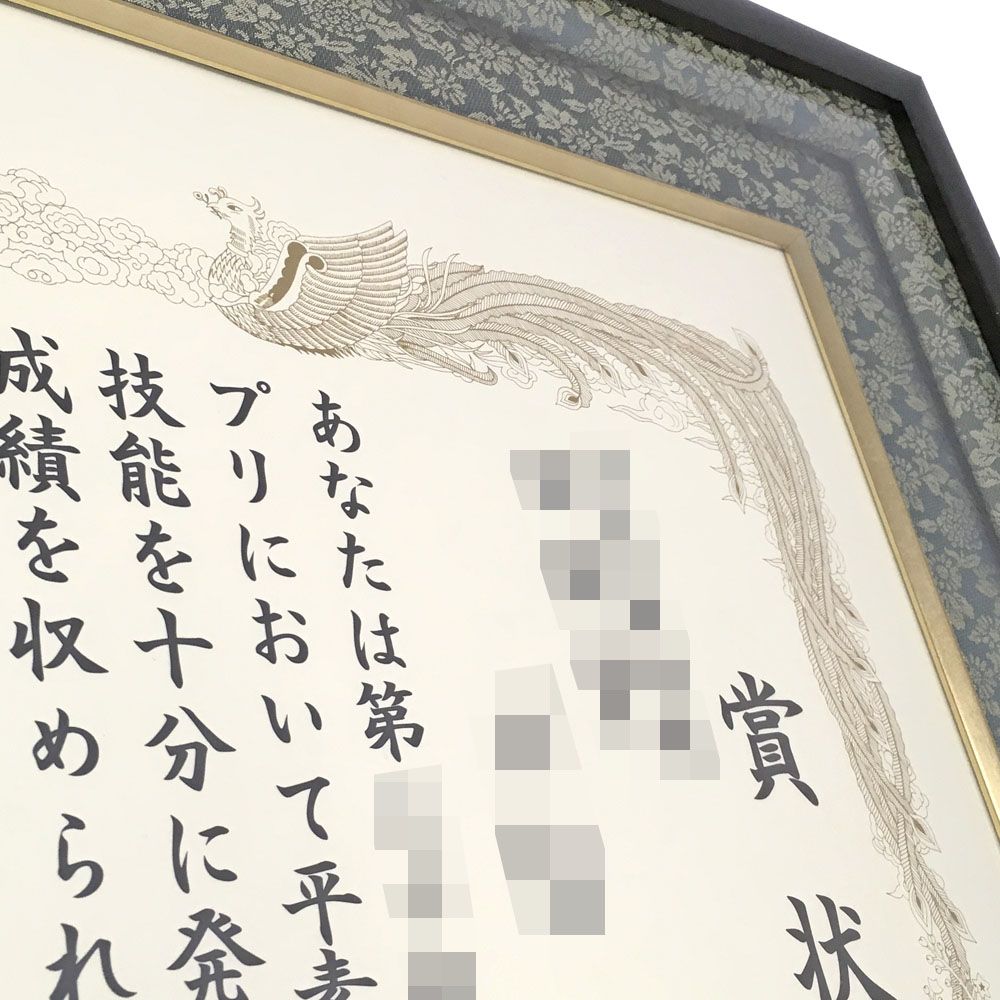 賞状
あなたは第
プリにおいて平素
技能を十分に発
成績を収められ